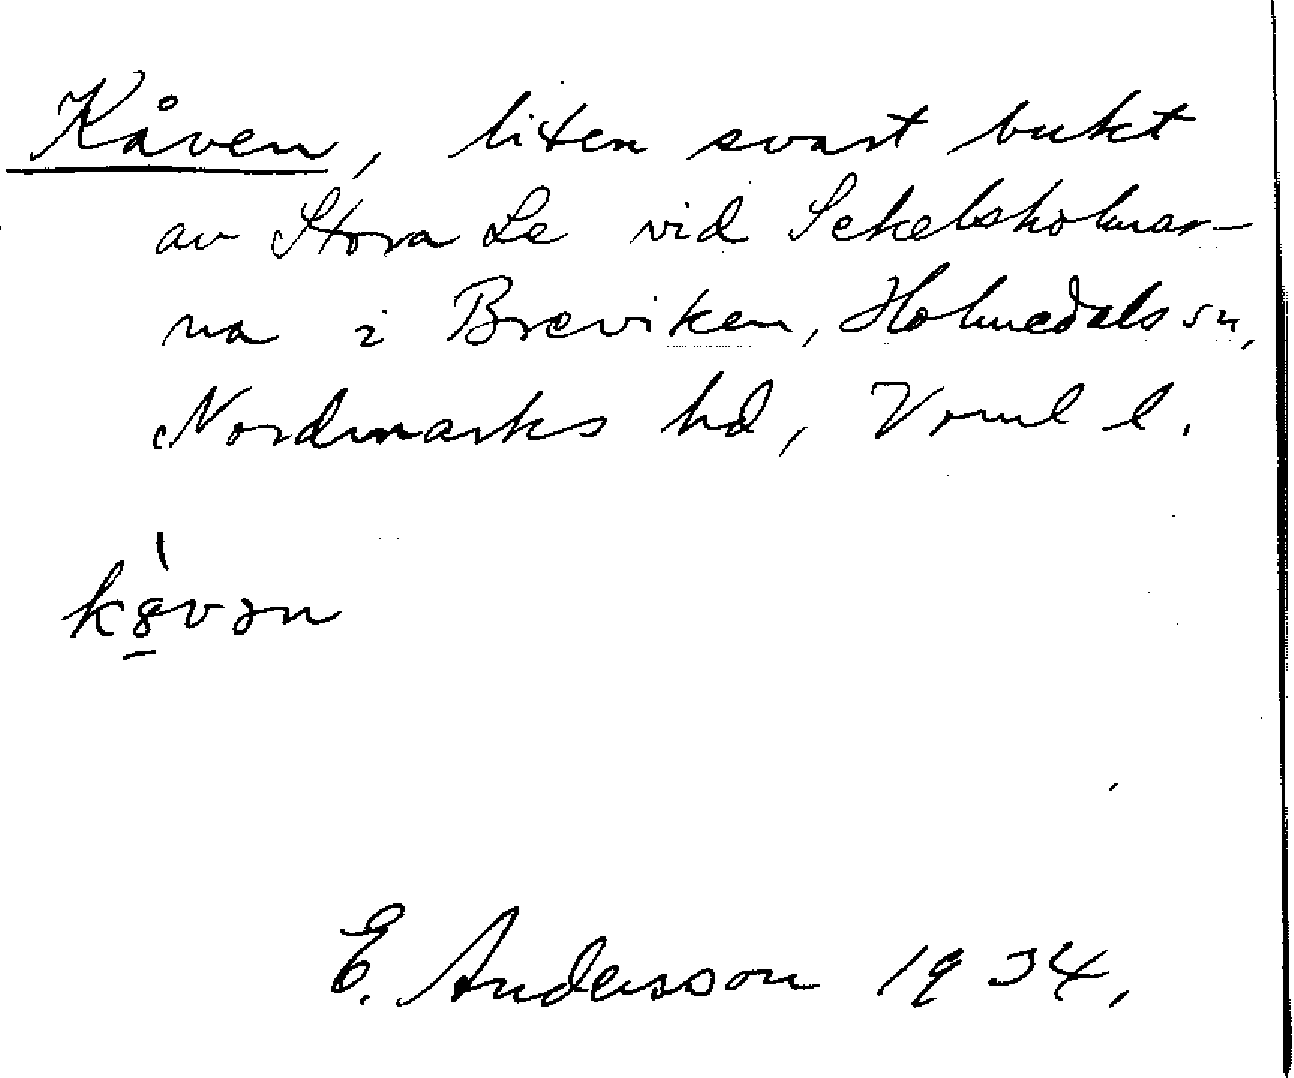 Kåven, liten svart bukt
av Stora Le vid Sekelsholmar-
na i Breviken, Holmedals sn,
Nordmarks hd, Vrml l.
kȣvən
E. Andersson 1934.